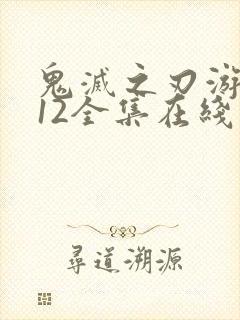 鬼滅之刃游
12全集在綫
尋道溯源